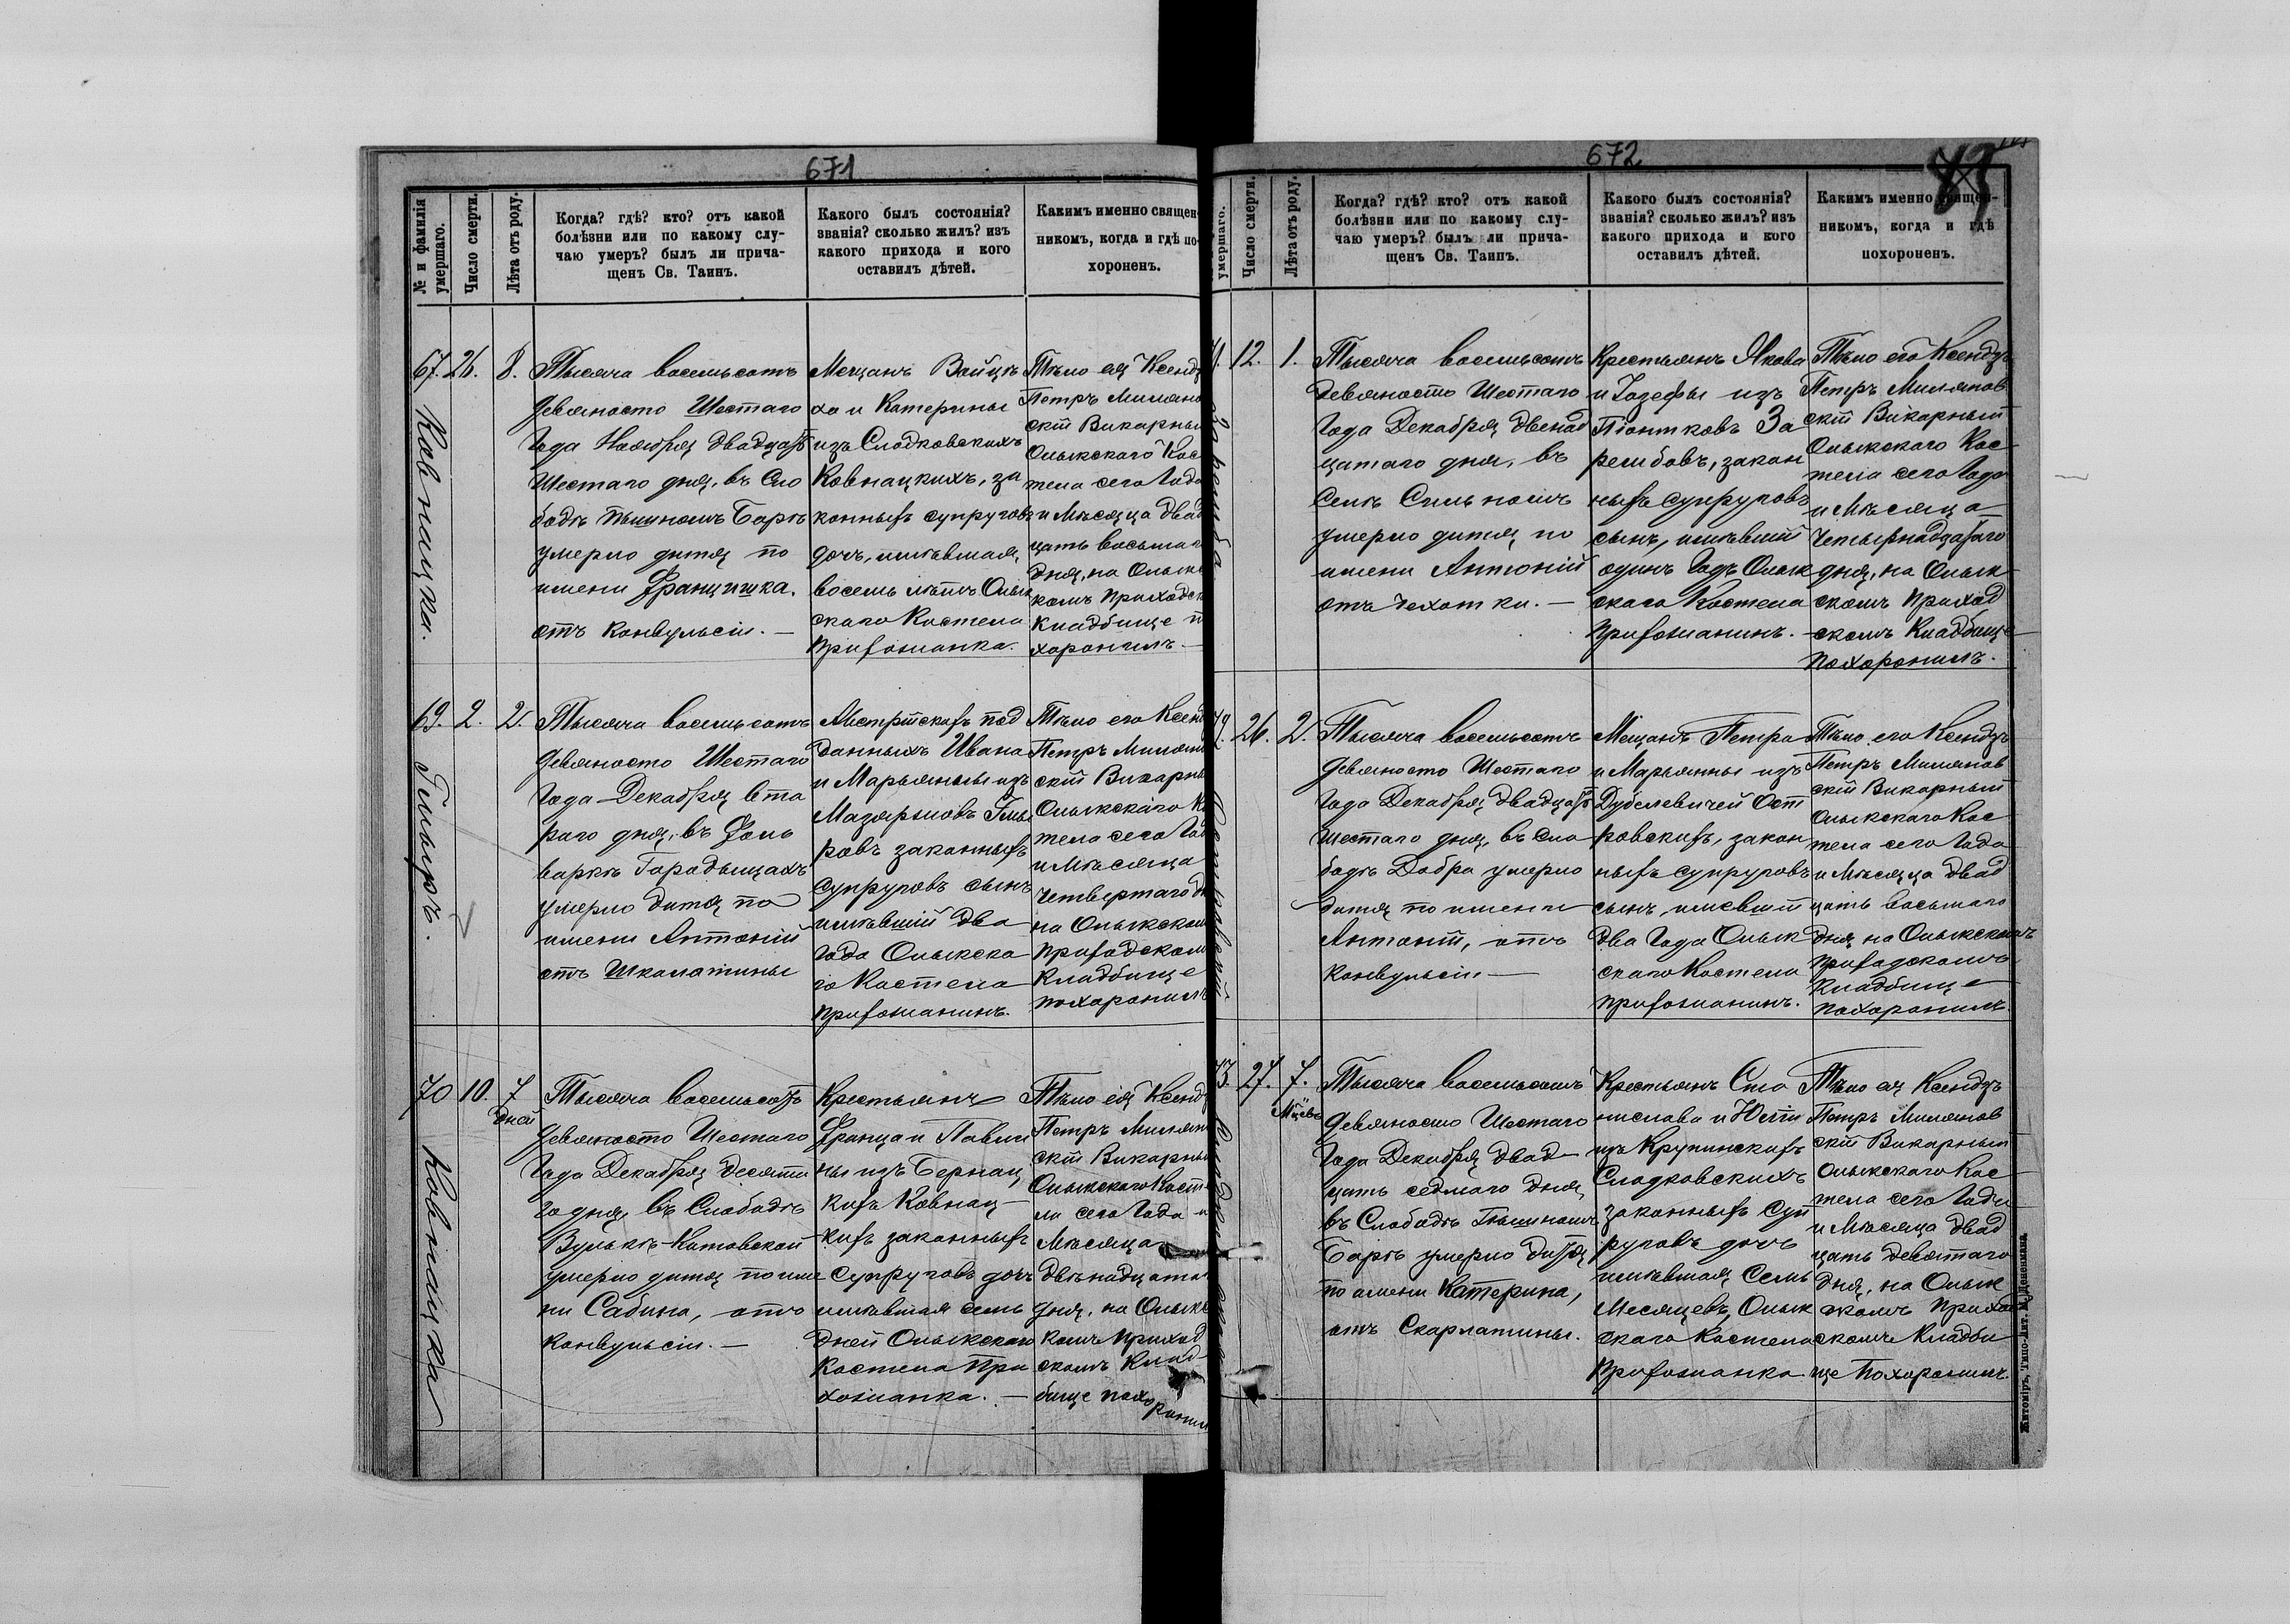 671
№ и фамилія умершаго.
Число смерти.
Лѣта отъ роду.
Когда? гдѣ? кто? отъ какой
болѣзни или по какому слу-
чаю умеръ? былъ ли прича-
щенъ Св. Таинъ.
Какого былъ состоянія?
званія? сколько жилъ? изъ
какого прихода и кого
оставилъ дѣтей.
Какимъ именно священ-
никомъ, когда и гдѣ по-
хороненъ.
67.
Ковнацка.
26.
8.
Тысяча восемьсотъ
девяносто Шестаго
Года Ноября двадцать
Шестаго дня, въ Сло
бодѣ Пьяномъ Барѣ
умерло дитя по
имени Францишка.
отъ конвульсіи. —
Мещанъ Войцѣ
ха и Катерины
изъ Сладковскихъ
Ковнацкихъ, за
конныхъ супруговъ
дочь, имѣвшая,
восемь лѣтъ Олык
скаго Костела
прихожанка.
Тѣло ея Ксендзъ
Петръ Миляно
скій Викарный
Олыкскаго Кос
тела сего Года
и Мѣсяца двад
цать восьмаго
дня, на Олык
комъ приходск
кладбище п
хоронилъ. —
69.
Гмыръ.
2.
2.
Тысяча восемьсотъ
девяносто Шестаго
Года Декабря вто
раго дня, въ Фоль
варкѣ Городыщахъ
умерло дитя по
имени Антоній
отъ Шкалатины
Австрійскихъ под
данныхъ Ивана
и Марьянны изъ
Мазярыовъ Гмы
ровъ законныхъ
супруговъ сынъ
имѣвшій два
года Олыкска
го Костела
прихожанинъ.
Тѣло его Ксенд
Петръ Милян
скій Викарны
Олыкскаго Ко
тела сего Год
и Мѣсяца
Четвертаго дн
на Олыкском
приходском
кладбище
похоронилъ
70
Ковнацка
10.
7
дней
Тысяча восемьсотъ
девяносто Шестаго
Года Декабря десята
го дня въ Слободѣ
Вулькѣ-Котовской
умерло дитя по име
ни Сабина, отъ
конвульсіи. —
Крестьянъ
Франца и Павли
ны изъ Бернац
кихъ Ковнац
кихъ законныхъ
супруговъ дочь
имѣвшая семь
дней Олыкскаго
Костела при
хожанка. —
Тѣло ея Ксендз
Петръ Милян
скій Викарны
Олыкскаго Кост
ла сего Года и
Мѣсяца
двѣнадцата
дня, на Олык
комъ приход
скомъ клад
бище похоронил
672
умершаго.
Число смерти.
Лѣта отъ роду.
Когда? гдѣ? кто? отъ какой
болѣзни или по какому слу-
чаю умеръ? былъ ли прича-
щенъ Св. Таинъ.
Какого былъ состоянія?
званія? сколько жилъ? изъ
какого прихода и кого
оставилъ дѣтей.
Какимъ именно священ-
никомъ, когда и гдѣ
похороненъ.
12.
1.
Тысяча восемьсотъ
девяносто Шестаго
Года Декабря двенад
цатаго дня, въ
Селѣ Сильномъ
умерло дитя по
имени Антоній
отъ чехотки. —
Крестьянъ Якова
и Іозефы изъ
Піонтковъ За
рембовъ, закон
ныхъ супруговъ
сынъ, имѣвшій
одинъ Годъ Олык
скаго Костела
прихожанинъ.
Тѣло его Ксендзъ
Петръ Милянов
скій Викарный
Олыкскаго Кос
тела сего Года
и Мѣсяца
Четырнадцатаго
дня, на Олык
скомъ приход
скомъ кладбище
похоронилъ.
26.
2.
Тысяча восемьсотъ
девяносто Шестаго
Года Декабря двадцать
шестаго дня, въ Сло
бодѣ Добра умерло
дитя по имени
Антоній, отъ
конвульсіи —
Мещанъ Петра
и Марьянны изъ
Дубелевичей Ост
ровскихъ, закон
ныхъ супруговъ
сынъ, имевшій
два Года Олык
скаго Костела
прихожанинъ.
Тѣло его Ксендзъ
Петръ Милянов
скій Викарный
Олыкскаго Кос
тела сего Года
и Мѣсяца двад
цать восьмаго
дня на Олыкскомъ
приходскомъ
кладбище
похоронилъ.
73.
27.
7.
Мцевъ
Тысяча восемьсотъ
девяносто Шестаго
Года Декабря двад-
цать седмаго дня,
въ Слободѣ Пьяномъ
Барѣ умерло дитя
по имени Катерина,
отъ Скарлатины.
Крестьянъ Ста
нислава и Юліи
изъ Крупинскихъ
Сладковскихъ
законныхъ суп
руговъ дочь
имѣвшая Семь
Месяцевъ, Олык
скаго Костела
прихожанка
Тѣло ея Ксендзъ
Петръ Милянов
скій Викарный
Олыкскаго Кос
тела сего Года
и Мѣсяца двад
цать девятаго
дня, на Олык
скомъ прихо
скомъ кладби
ще похоронилъ.
Житоміръ, Типо-Лит. М. Дененмана.